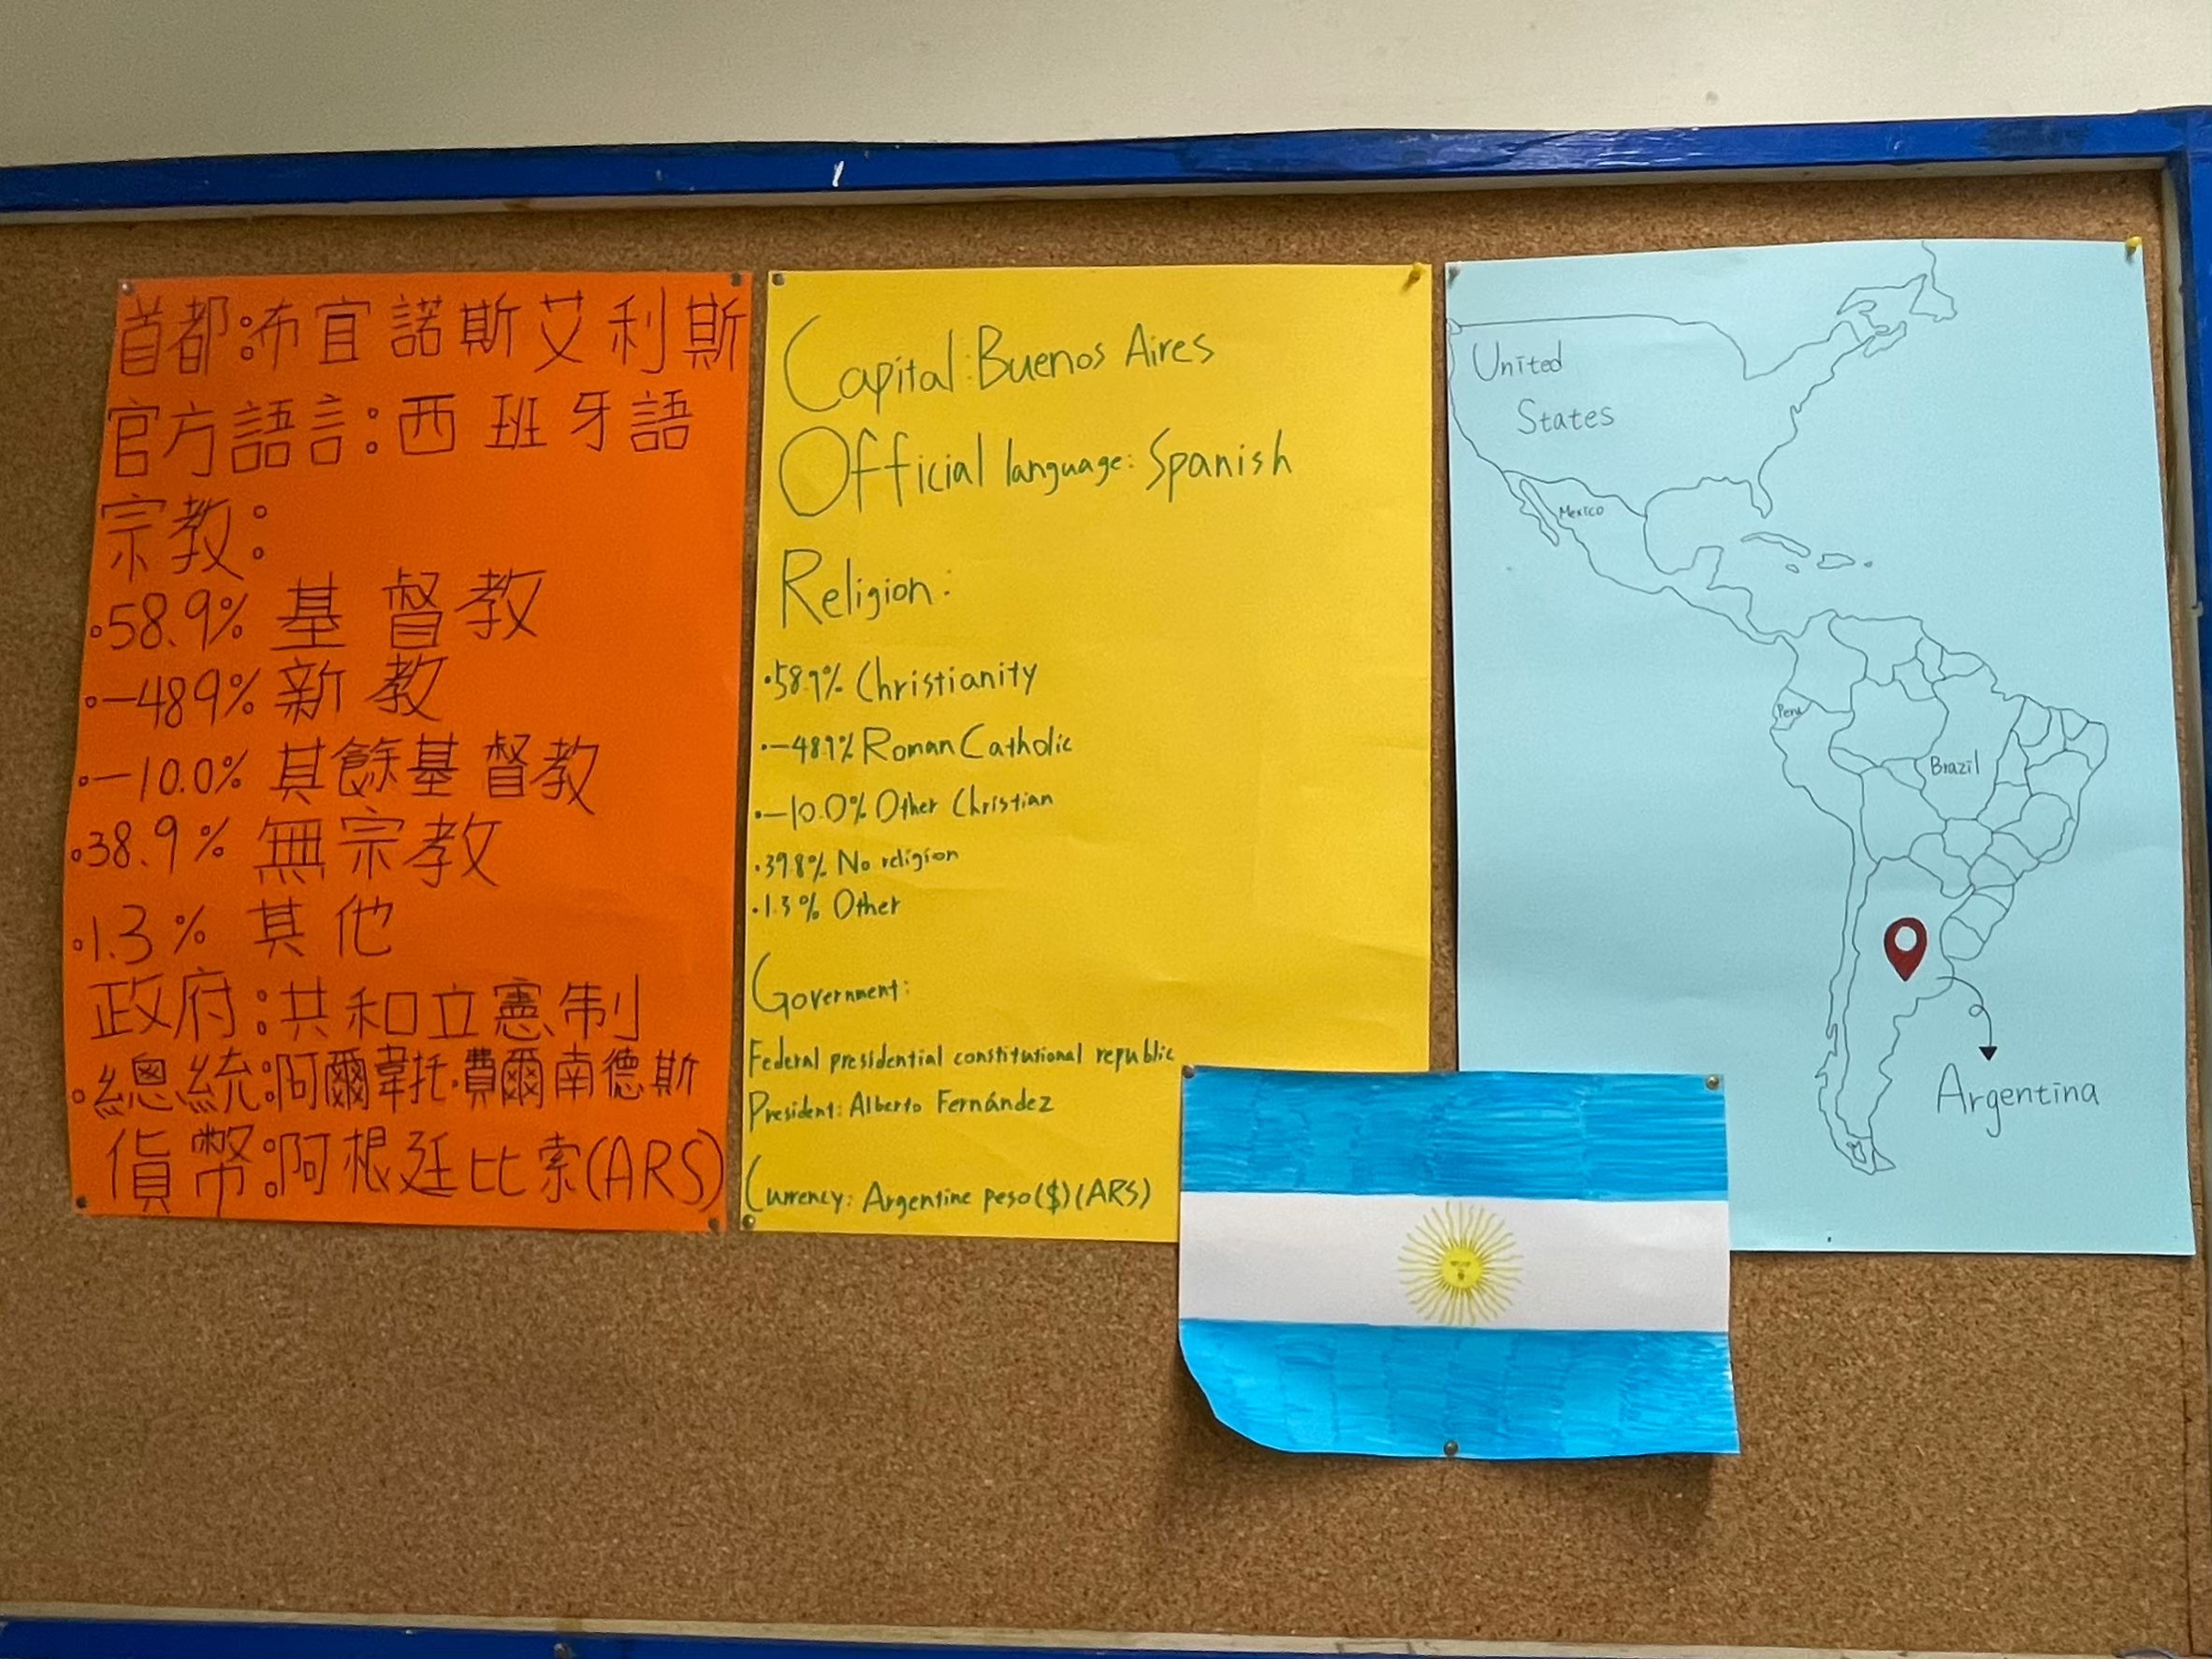 首都:布宜諾斯艾利斯
官方語言:西班牙語
宗教:
•58.9% 基督教
•-48.9% 新教
•-10.0% 其餘基督教
•38.9% 無宗教
•1.3% 其他
政府:共和立憲制
•總統:阿爾韋托•費爾南德斯
貨幣:阿根廷比索(ARS)
Capital:Buenos Aires
Official language: Spanish
Religion:
•58.9% Christianity
•-48.9% Roman Catholic
•-10.0% Other Christian
•39.8% No religion
•1.3% Other
Government:
Federal presidential constitutional republic
President: Alberto Fernández
Currency: Argentine peso($)(ARS)
United
States
Mexico
Peru
Brazil
Argentina